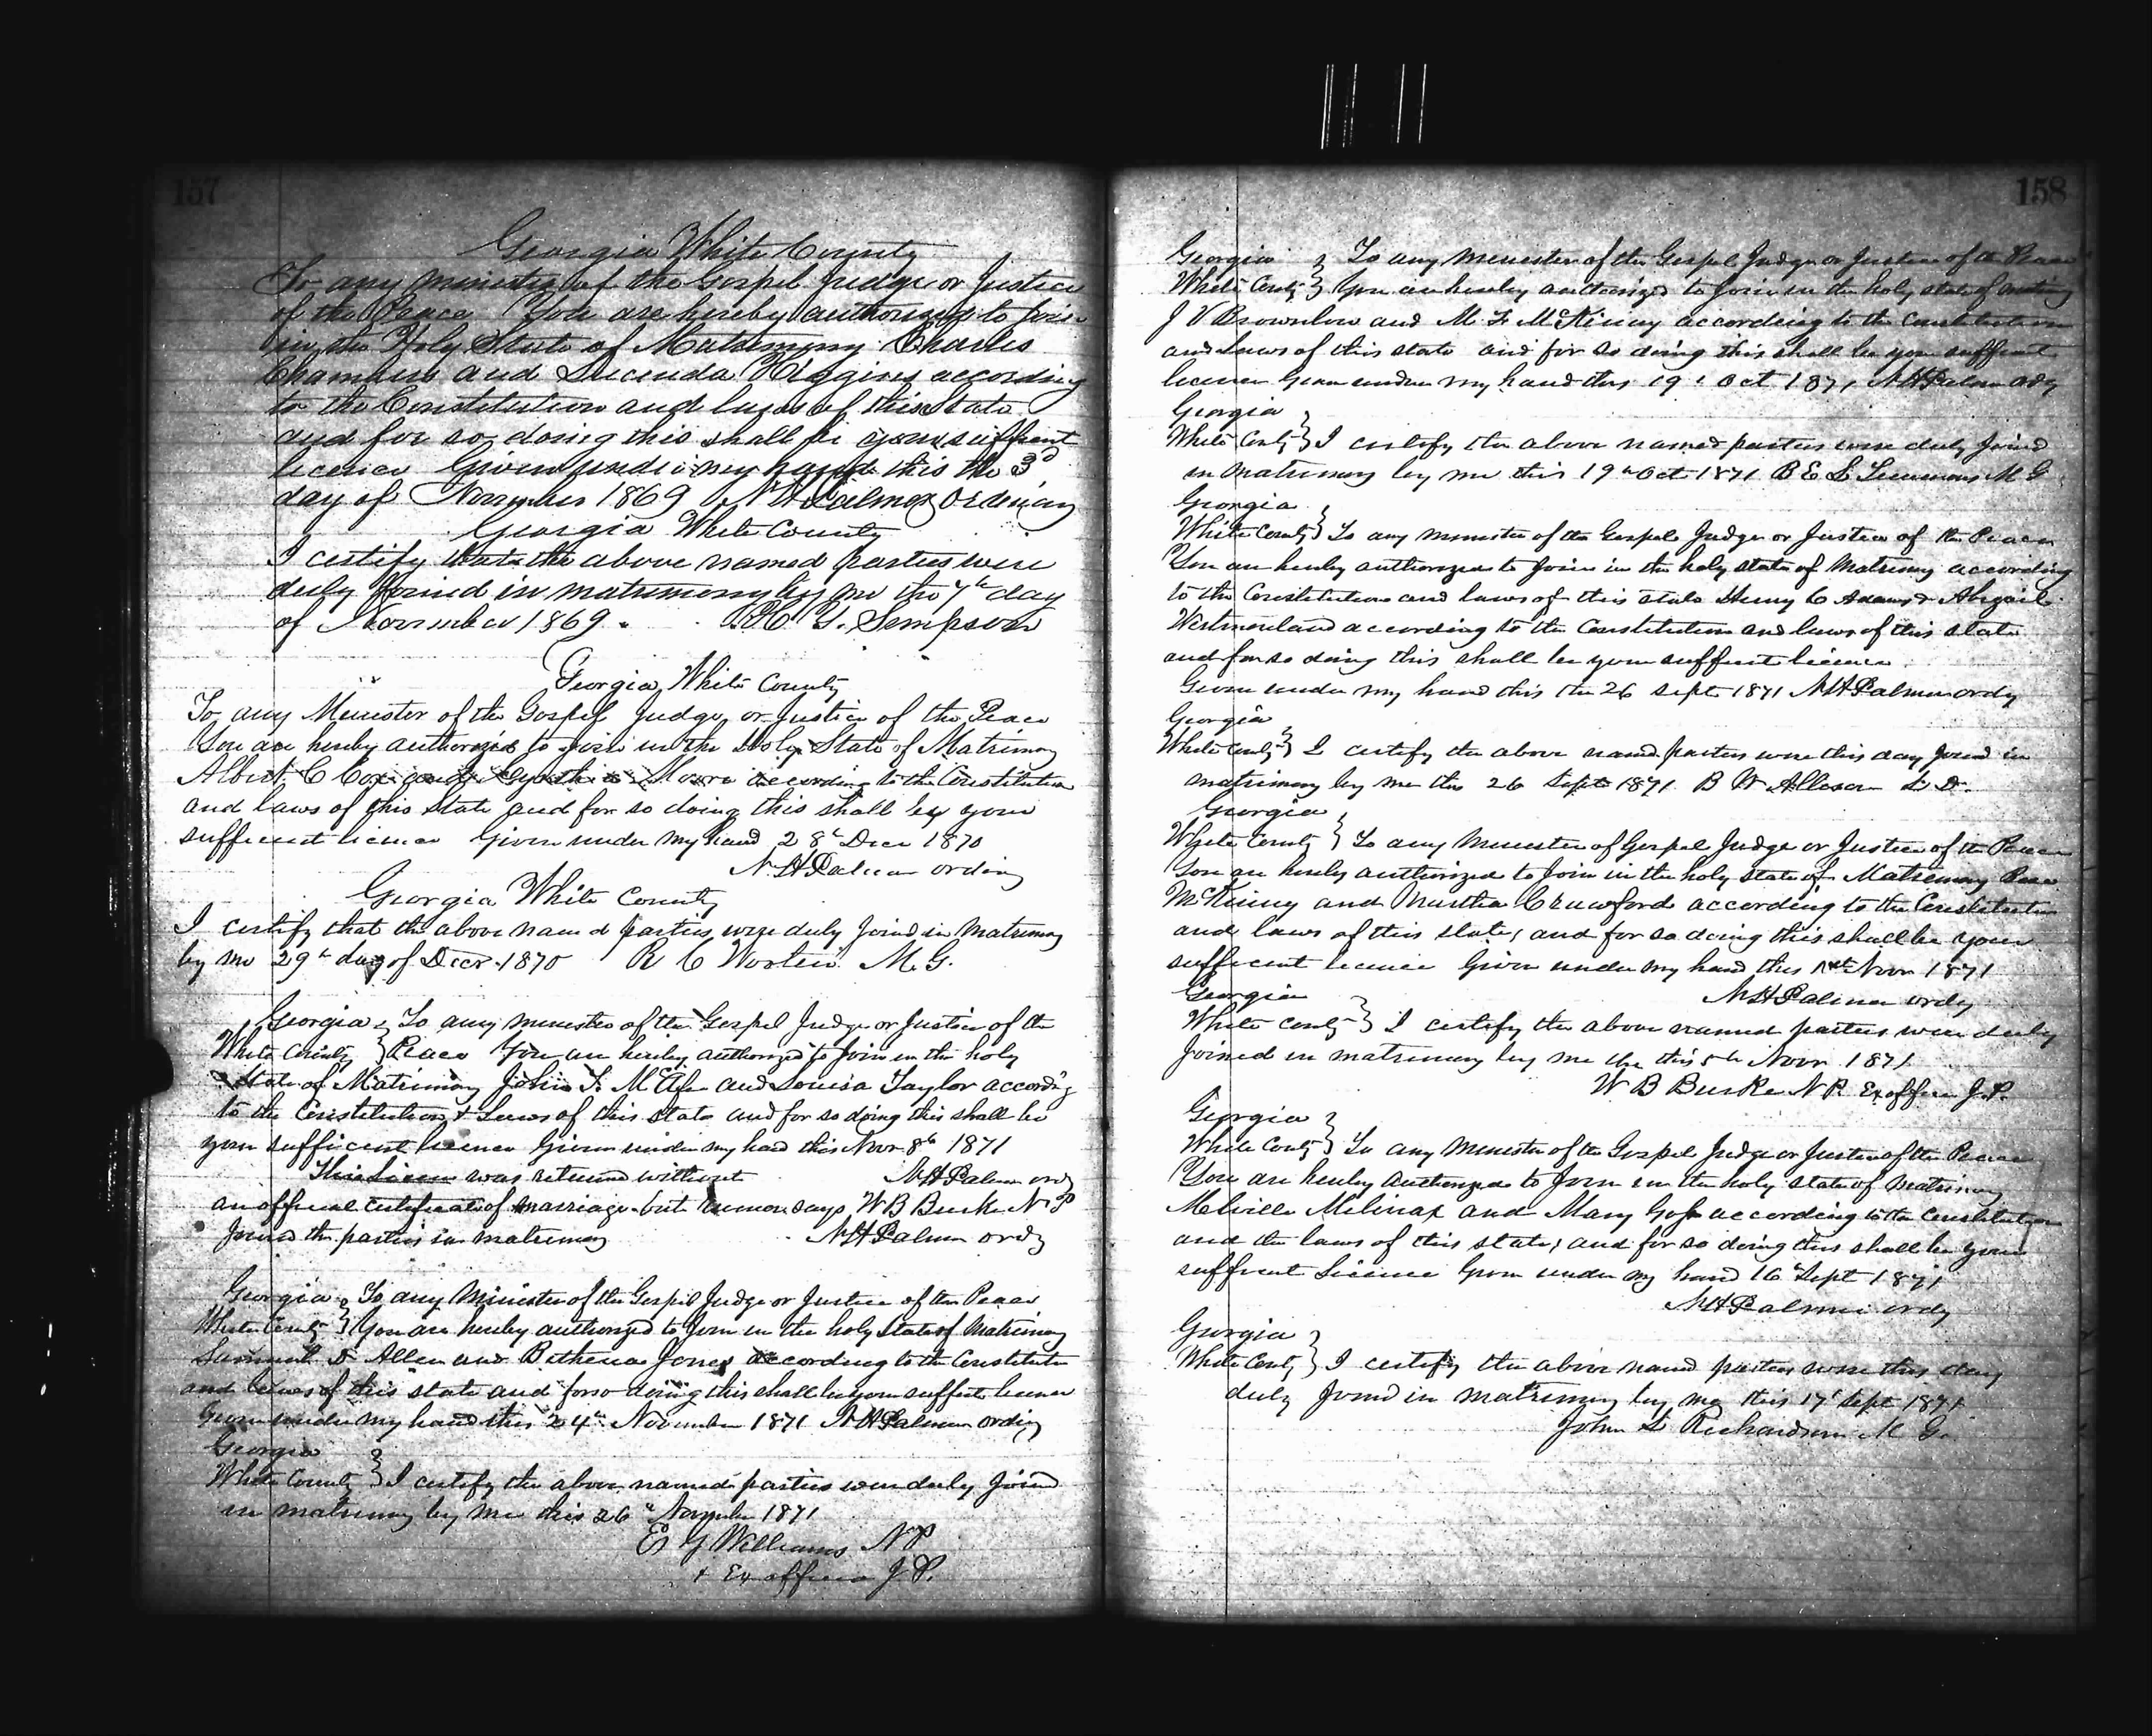 157
Georgia White County
To any minister of the Gospel Judge or Justice
of the Peace You are hereby authorized to join
in the Holy State of Matrimony Charles
Chambers and Lucinda Higgins according
to the Constitution and laws of this State
and for so doing this shall be your sufficient
licence Given under my hand this the 3d
day of November 1869 N H Palmer Ordinary
Georgia White County
I certify that the above named parties were
duly Joined in matrimony by me the 7th day
of November 1869. T. Simpson
Georgia White County
To any Minister of the Gospel Judge or Justice of the Peace
You are hereby authorized to join in the Holy State of Matrimony
Albert C Cox and Cynthia Moore according to the Constitution
and laws of this state and for so doing this shall be your
sufficient licence Given under my hand 28th Decr 1870
N H Palmer ordinary
Georgia White County
I certify that the above named parties were duly Joined in Matrimony
by me 29th day of Decr. 1870 R C Worten M. G.
Georgia To any minester of the Gospel Judge or Justice of the
White County } Peace You are hereby authorized to Join in the holy
State of Matrimony John McAfee and Louisa Taylor according
to the Constitution & Laws of this state and for so doing this shall be
your sufficient licence Given under my hand this Novr 8th 1871
This Licence was returned without N H Palmer ordy
an official certificate of marriage but rumor says W B Burke N P
Joined the parties in matrimony N H Palmer ordy
Georgia To any Minister of the Gospel Judge or Justice of the Peace
White County } You are hereby authorized to Join in the holy State of Matrimony
Samuel D Allen and Bethena Jones according to the Constitution
and laws of this state and for so doing this shall be your sufficient licence
Given under my hand this 24th November 1871 N H Palmer ordiny
Georgia
White County } I certify the above named parties were duly Joined
in matrimony by me this 26th November 1871
E G Williams N P
+ Ex officio J. P.
158
Georgia } To any Minester of the Gospel Judge or Justice of the Peace
White County } You are hereby authorized to Join in the holy state of
J V Brownlow and M McKinny according to the Constitution
and Laws of this state and for so doing this shall be your sufficient
licence Given under my hand this 19th Oct 1871 N H Palmer ordy
Georgia
White County } I certify the above named parties were duly Joined
in matrimony by me this 19th Oct 1871 B E L Timmons M G
Georgia
White County } To any minister of the Gospel Judge or Justice of the Peace
You are hereby authorized to Join in the holy state of Matrimony according
to the Constitution and laws of this state Henry C Adams & Abigail
Westmoreland according to the Constitution and laws of this state
and for so doing this shall be your sufficient licence
Given under my hand this the 26 Sept 1871 N H Palmer ordy
Georgia
White County } I certify the above named parties were this day Joined in
matrimony by me this 26 Sept 1871 B W Allison
Georgia
White County } To any Minester of Gospel Judge or Justice of the Peace
You are hereby authorized to Join in the holy state of Matrimony
McKinny and Martha Crawford according to the Constitution
and laws of this state; and for so doing this shall be your
sufficient licence Given under my hand this Novr 1871
Georgia N H Palmer ordy
White County } I certify the above named parties were duly
Joined in matrimony by me the this 5th Novr 1871
W B Burke N P. Ex officio J. P.
Georgia
White County } To any Minester of the Gospel Judge or Justice of the Peace
You are hereby Authorized to Join in the holy state of Matrimony
Melville Milinax and Mary according to the Constitution
and the laws of this state; and for so doing this shall be your
sufficient Licence Given under my hand 16 Sept 1871
N H Palmer ordy
Georgia
White County } I certify the above named parties were this day
duly Joined in matrimony by me this 17th Sept 1871
John L Richardson M G.